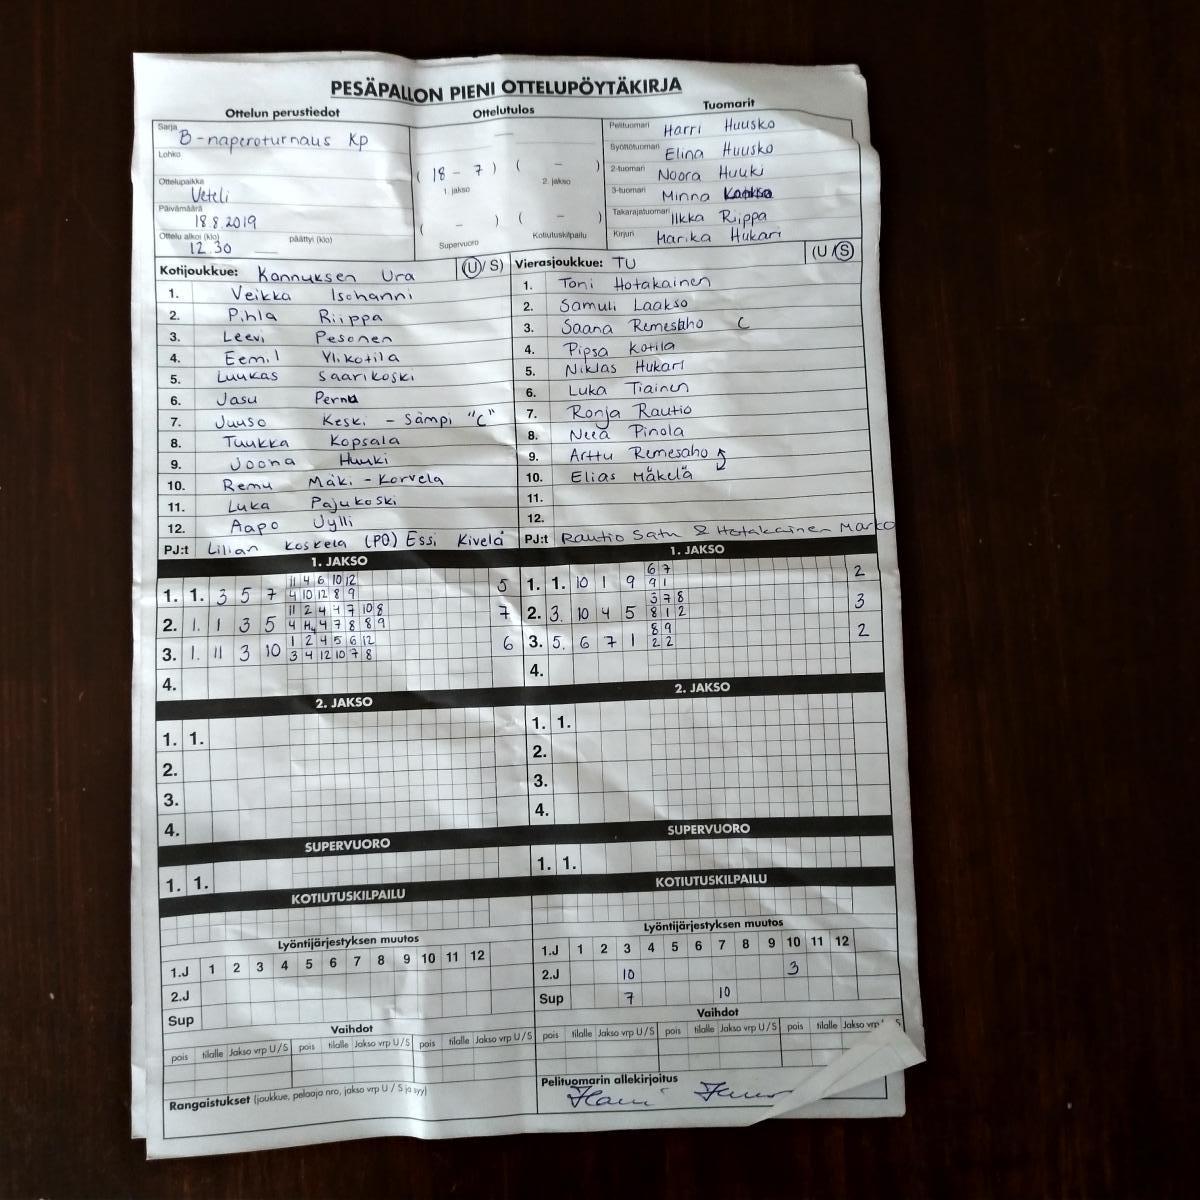 PESÄPALLON PIENI OTTELUPÖYTÄKIRJA
Ottelun perustiedot Ottelutulos Tuomarit
Sarja B-naperoturnaus Kp
Lohko
Ottelupaikka Veteli
Päivämäärä 18.8.2019
Ottelu alkoi (klo) 12.30 päättyi (klo)
( 18 - 7 ) ( - )
1. jakso 2. jakso
( - ) ( - )
Supervuoro Kotiutuskilpailu
Pelituomari Harri Huusko
Syöttötuomari Elina Huusko
2-tuomari Noora Huuki
3-tuomari Minna
Takarajatuomari Ilkka Riippa
Kirjuri Marika Hukari
Kotijoukkue: Kannuksen Ura (U/S)
1. Veikka Isohanni
2. Pihla Riippa
3. Leevi Pesonen
4. Eemil Ylikotila
5. Luukas Saarikoski
6. Jasu Pernu
7. Juuso Keski - Sämpi "C"
8. Tuukka Kopsala
9. Joona Huuki
10. Remu Mäki - Korvela
11. Luka Pajukoski
12. Aapo Jylli
PJ:t Lilian Koskela (PO) Essi Kivelä
Vierasjoukkue: TU (U/S)
1. Toni Hotakainen
2. Samuli Laakso
3. Saana Remesaho C
4. Pipsa Kotila
5. Niklas Hukari
6. Luka Tiainen
7. Ronja Rautio
8. Neea Pinola
9. Arttu Remesaho
10. Elias Mäkelä
11.
12.
PJ:t Rautio Satu & Hotakainen Marko
1. JAKSO
11 4 6 10 12
1. 1. 3 5 7 4 10 12 8 9 5
11 2 4 4 7 10 8
2. 1. 1 3 5 4 4 7 8 8 9 7
1 2 4 5 6 12
3. 1. 11 3 10 3 4 12 10 7 8 6
4.
2. JAKSO
1. 1.
2.
3.
4.
SUPERVUORO
1. 1.
KOTIUTUSKILPAILU
Lyöntijärjestyksen muutos
1.J 1 2 3 4 5 6 7 8 9 10 11 12
2.J
Sup
Vaihdot
pois tilalle Jakso vrp U/S pois tilalle Jakso vrp U/S pois tilalle Jakso vrp U/S
Rangaistukset (joukkue, pelaaja nro, jakso vrp U / S ja syy)
1. JAKSO
6 7
1. 1. 10 1 9 9 1 2
3 7 8
2. 3. 10 4 5 8 1 2 3
8 9
3. 5. 6 7 1 2 2 2
4.
2. JAKSO
1. 1.
2.
3.
4.
SUPERVUORO
1. 1.
KOTIUTUSKILPAILU
Lyöntijärjestyksen muutos
1.J 1 2 3 4 5 6 7 8 9 10 11 12
2.J 10 3
Sup 7 10
Vaihdot
pois tilalle Jakso vrp U/S pois tilalle Jakso vrp U/S pois tilalle Jakso vrp S
Pelituomarin allekirjoitus